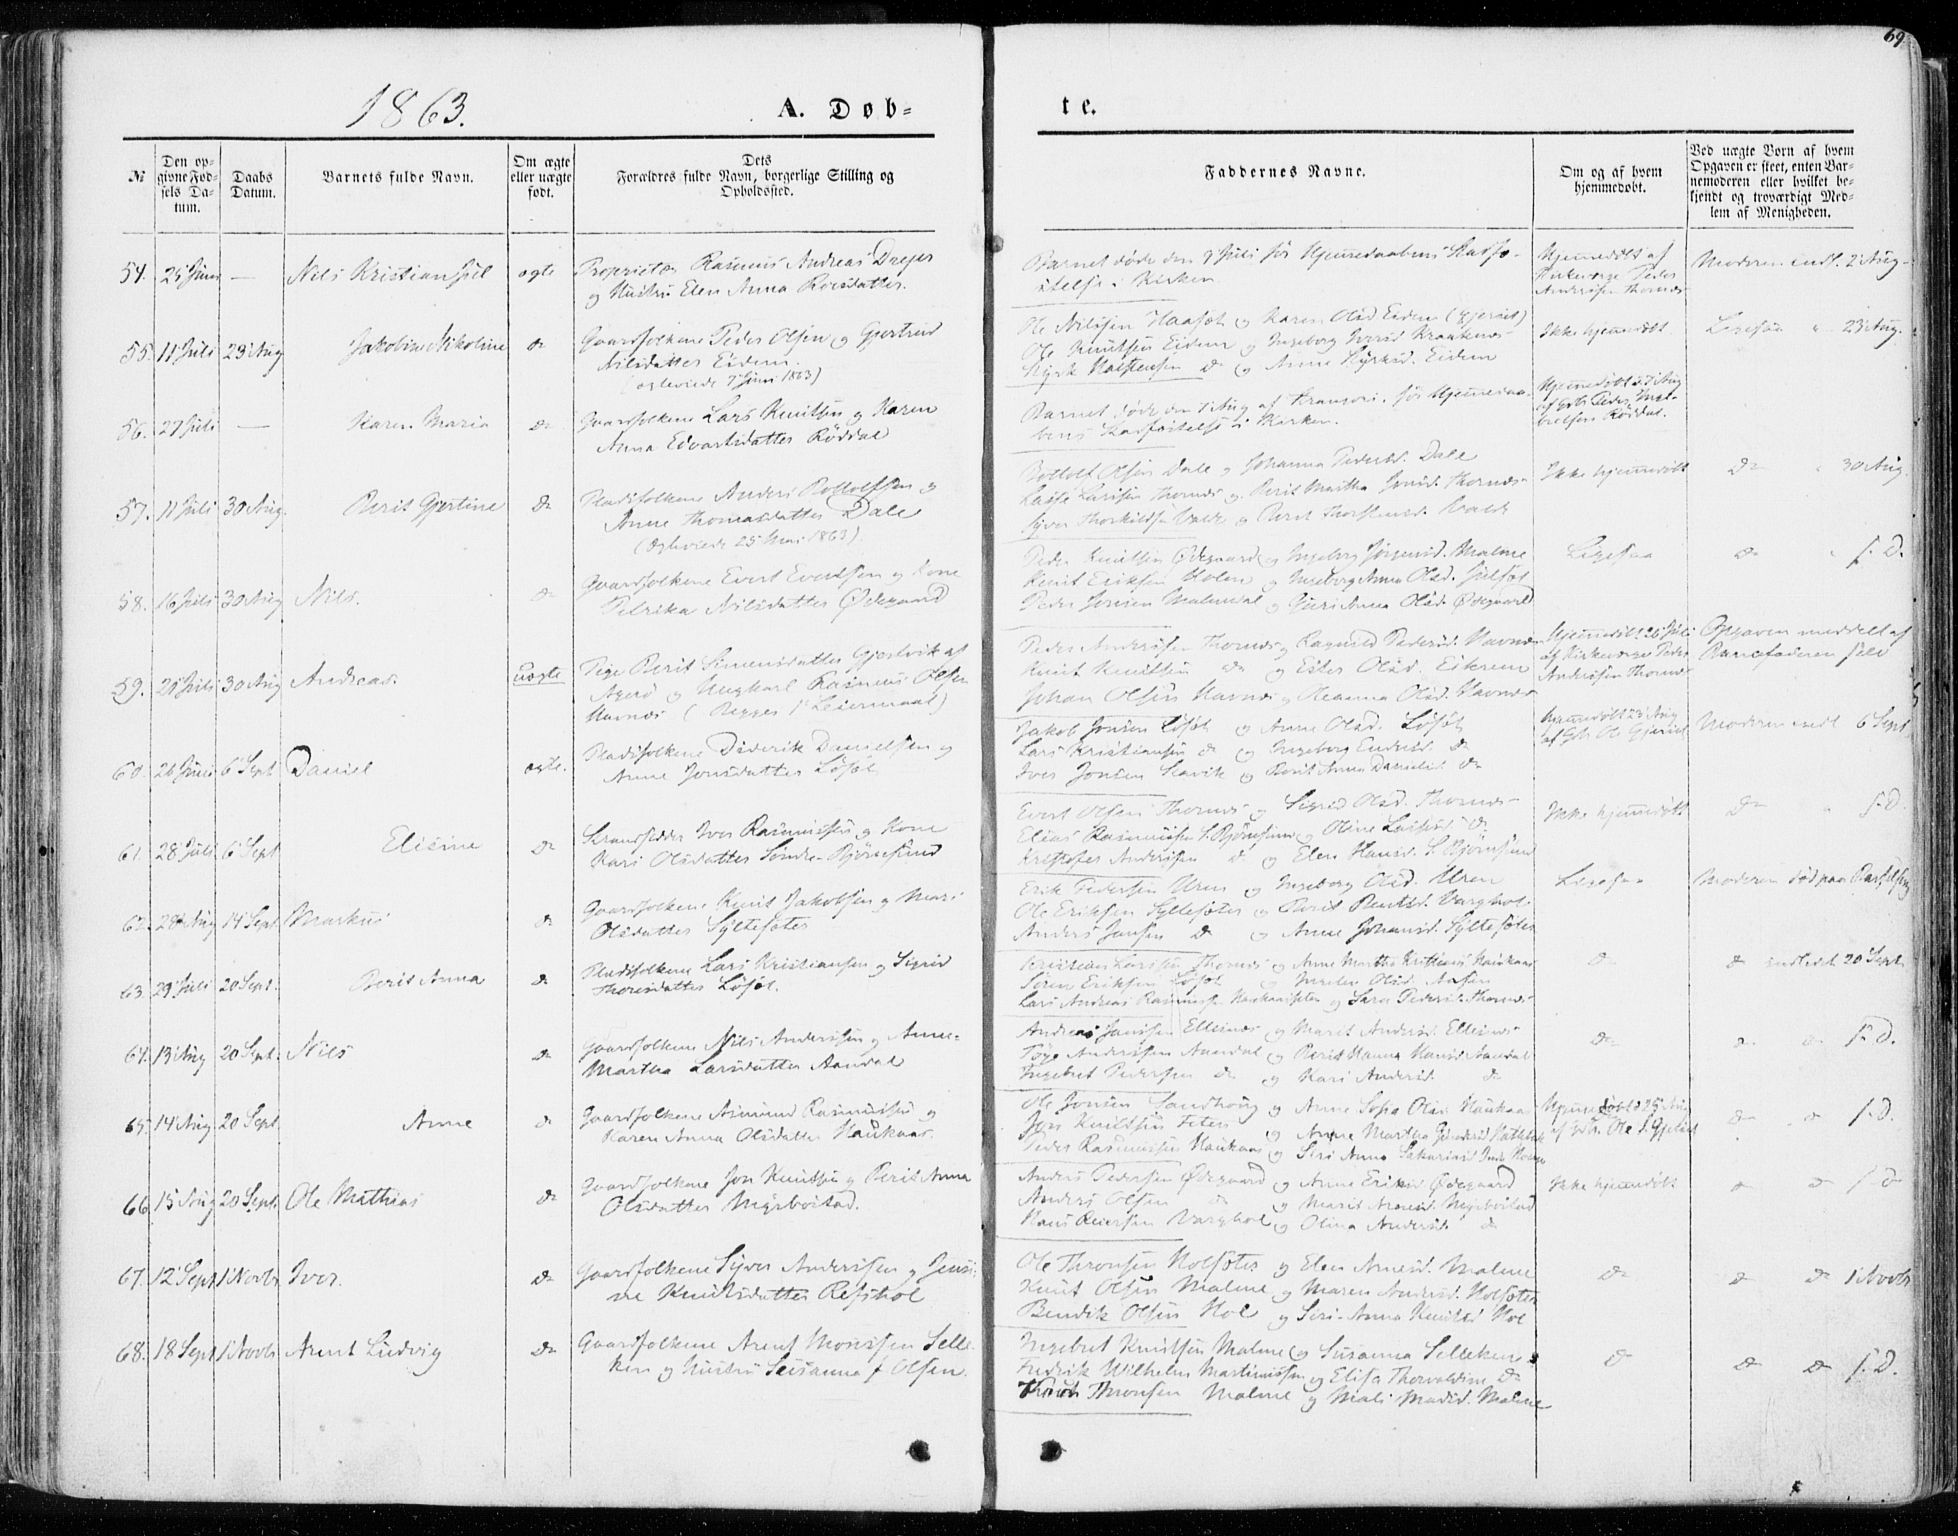 69
1863.
A. Døb-
te.
№
Den op-
givne Fød-
sels Da-
tum.
Daabs
Datum.
Barnets fulde Navn.
Om ægte
eller uægte
født.
Dets
Forældres fulde Navn, borgerlige Stilling og
Opholdssted.
Faddernes Navne.
Om og af hvem
hjemmedøbt.
Ved uægte Børn af hvem
Opgaven er skeet, enten Bar-
nemoderen eller hvilket be-
kjendt og troværdigt Med-
lem af Menigheden.
54. 25 Juni — Nils Kristian ægte Proprietær Rasmus Andreas Dreyer
og Hustru Elen Anna Roesdatter.
Barnet døde den 9 Juli før Hjemmedaabens Stadfæ-
stelse i Kirken.
Hjemmedøbt af
Kirkeværge Peder
Andersen Thornæs
Moderen indl. 2 Aug.
55. 11 Juli 23 Aug Jakobine Nikoline do Gaardfolkene Peder Olsen og Gjertrud
Nilsdatter Eidem.
(ægteviede 7 Juni 1863)
Ole Nilsen Haasæt og Karen Olsd Eidem
Ole Knutsen Eidem og Ingeborg Iversd Kraaknæs
Halstensen do og Anne Eidem
Ikke hjemmedøbt
Ligesaa 23 Aug.
56. 27 Juli — Karen Maria do Gaardfolkene Lars Knutsen og Karen
Anna Edvartsdatter Røddal
Barnet døde den 1 Aug af før Hjemmedaa-
bens Stadfæstelse i Kirken.
Hjemmedøbt 27 Aug
af Peder
Røddal.
57. 11 Juli 30 Aug. Berit Gjertine do Pladsfolkene Anders Bottolfsen og
Anne Thomasdatter Dale
(ægteviede 25 Mai 1863).
Bottolf Olsen Dale og Johanna Pedersd. Dale
Lasse Larssen Thornæs og Berit Martha Thornæs
Thorkildsen Valde og Berit Thorstensd. Valde
Ikke hjemmedøbt
do 30 Aug.
58. 16 Juli 30 Aug Nils. do Gaardfolkene Evert Evertsen og Kone
Petrika Nilsdatter Ødegaard
Peder Knutsen Ødegaard og Ingeborg Jørgensd. Malme
Knut Eriksen Holen og Ingeborg Anna Olsd. Julsæt
Peder Jonsen Malmedal og Guri Anna Olsd. Ødegaard
Ligesaa do s. D.
59. 25 Juli 30 Aug Andreas. uægte Pige Berit Simensdatter Gjerlvik af
Agerø og Ungkarl Rasmus Olsen
Havnæs (Begges 1ste Leiermaal)
Peder Andersen Thornæs og Ragnild Pedersd. Havnæs
Knut Knutsen do og Ester Olsd. Eikrem
Johan Olsen Havnæs og Oleanna Olsd. Havnæs
Hjemmedøbt 26 Juli
af Kirkeværge Peder
Andersen Thornæs
Opgaven meddelt af
Barnefaderen selv
60. 26 Juni 6 Sept Daniel ægte. Pladsfolkene Diderik Danielsen og
Anne Jonsdatter Løsæt
Jakob Jonsen Løsæt og Anne Olsd. Løsæt
Lars Kristiansen do og Ingeborg Endresd. do
Iver Jonsen Slavik og Berit Anna Danielsd. do
Hjemmedøbt 23 Aug
af Ole Gjersæt
Moderen indl 6 Sept.
61. 28 Juli 6 Sept Elisine do Strandsidder Iver Rasmussen og Kone
Kari Olsdatter Søndre-Bjørnesund
Evert Olsen Thornæs og Sigrid Olsd. Thornæs
Elias Rasmussen S. Bjørnsund og Oline Larsd. do
Kristofer Andersen do og Elen Hansd. S. Bjørnsund
Ikke hjemmedøbt
do s. D.
62. 28 Aug 14 Sept Markus do Gaardfolkene Knut Jakobsen og Mari
Olsdatter Syltesæter
Erik Pedersen Uren og Ingeborg Olsd. Uren
Ole Eriksen Syltesæter og Berit Bentsd. Varghol
Anders Jonsen do og Anne Johansd. Syltesæter
Ligesaa
Moderen død paa Barselseng
63. 29 Juli 20 Sept. Berit Anna do Pladsfolkene Lars Kristiansen og Sigrid
Thoresdatter Løsæt.
Kristian Larssen Thornæs og Anne Martha Kristiansd. Haukaas
Søren Eriksen Løsæt og Olsd. Aasen
Lars Andreas Rasmussen og Sara Pedersd. Thornæs
do do indledet 20 Sept
64. 13 Aug 20 Sept. Nils do Gaardfolkene Nils Andersen og Anne-
Martha Larsdatter Aandal
Andreas Jonsen Ellisnæs og Marit Andersd. Ellisnæs
Andersen Aandal og Berit Hanna Hansd Aandal
Ingebret Pedersen do og Kari Andersd. do
do do do s. D.
65. 14 Aug. 20 Sept. Anne do Gaardfolkene Asmund Rasmussen og
Karen Anna Olsdatter Haukaas.
Ole Jonsen Sandhoug og Anne Sofia Olsd. Haukaas
Jon Knutsen Feter og Anne Martha
Peder Rasmussen Haukaas og Siri Anna Sakariasd.
Hjemmedøbt 25 Aug
af Ole Gjersæt
do do s. D.
66. 15 Aug 20 Sept. Ole Mathias do Gaardfolkene Jon Knutsen og Berit Anna
Olsdatter Myrbostad.
Anders Pedersen Ødegaard og Anne Eriksd Ødegaard
Anders Olsen do og Marit Arnesd. Myrbostad
Hans Reiersen Varghol og Olina Andersd. do
Ikke hjemmedøbt
do do s. D
67. 12 Sept 1 Novbr Iver. do Gaardfolkene Syver Andersen og Jensi-
ne Knutsdatter Refshol
Ole Thronsen Holsæter og Elen Arnesd. Malme
Knut Olsen Malme og Maren Andersd. Holsæter
Bendik Olsen Hol og Siri-Anna Knutsd Hol
do do do 1 Novbr
68. 18 Sept 1 Novbr Arent Ludvig do Gaardfolkene Arent Monssen Selle-
ken og Hustru Susanna f. Olsen.
Ingebret Knutsen Malme og Susanna Selleken
Fredrik Wilhelm Martinussen og Elisa Thorvaldine do
Knut Thronsen Malme og Mali Madsd. Malme
do do do s. D.